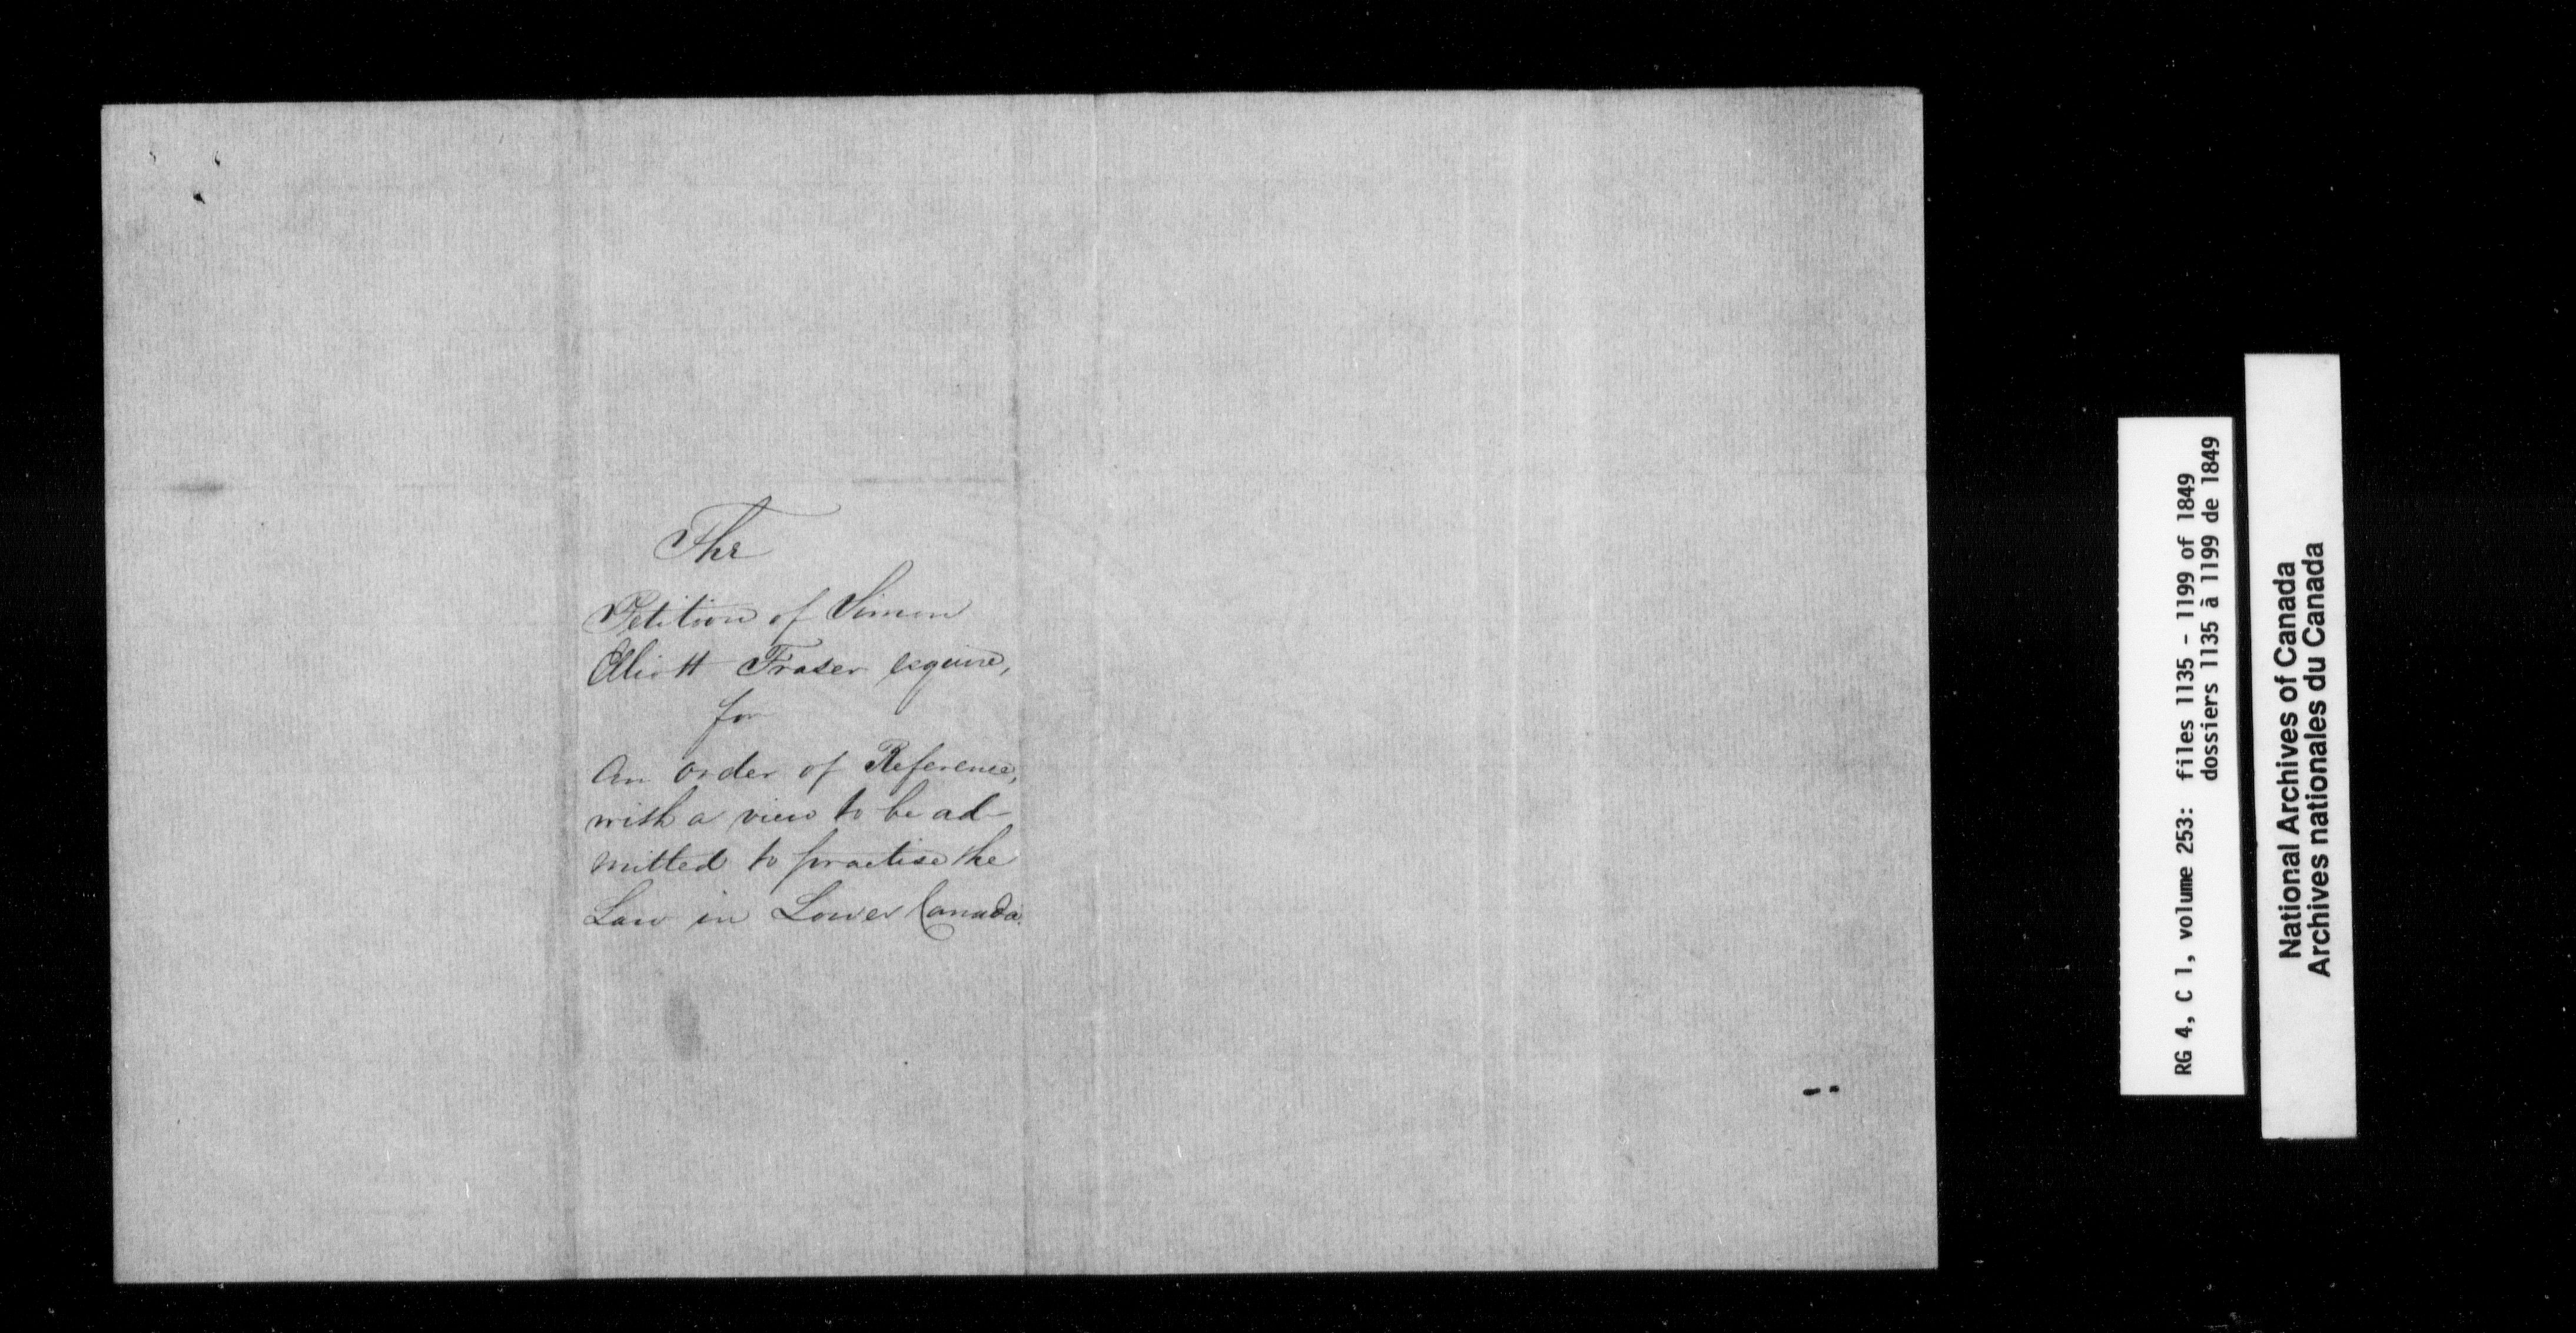 The
Petition of Simon
Elliott Fraser esquire,
for
An order of Reference,
with a view to be ad-
mitted to practise the
Law in Lower Canada.
RG 4, C 1, volume 253: files 1135 - 1199 of 1849
dossiers 1135 à 1199 de 1849
National Archives of Canada
Archives nationales du Canada